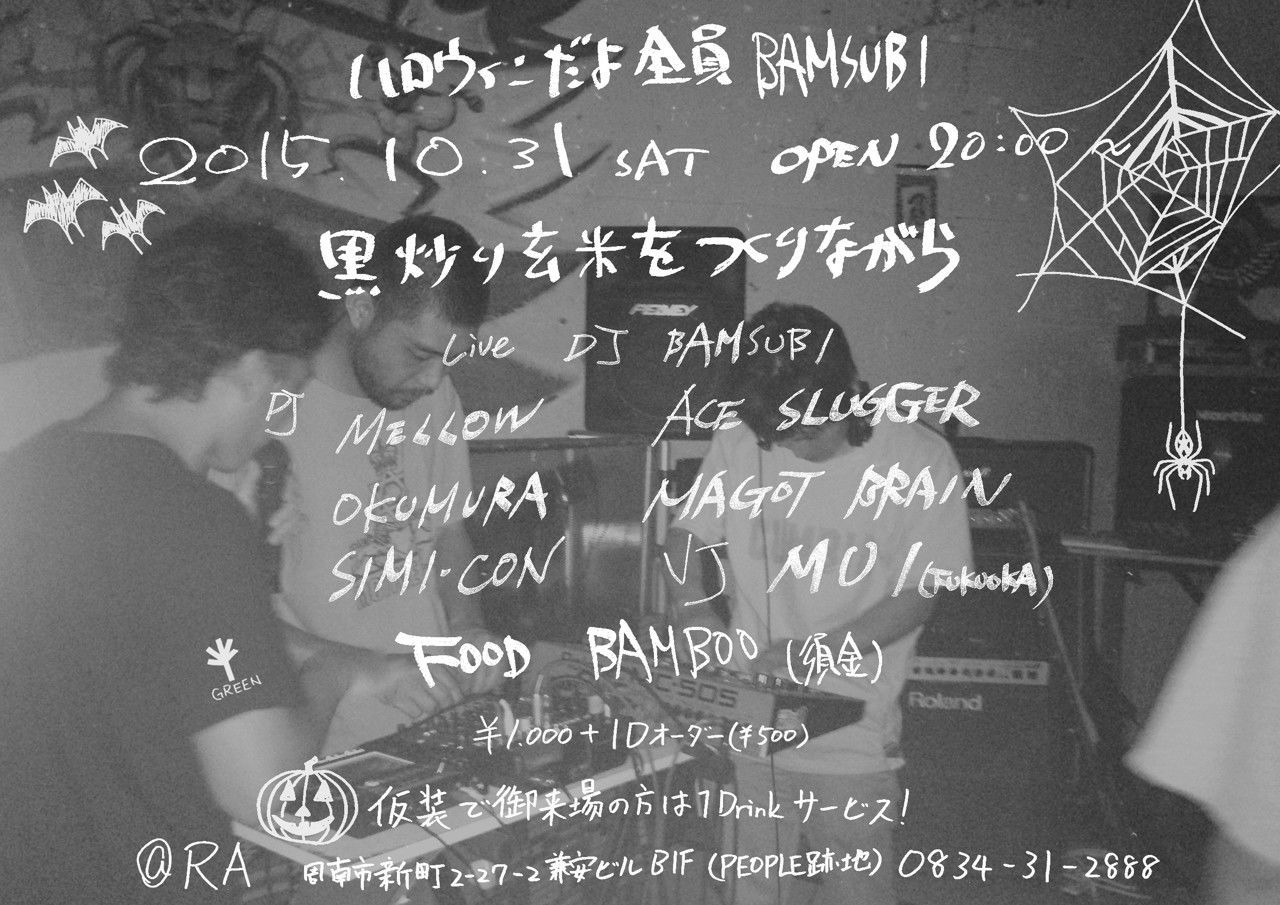 ハロウィンだよ全員BAMSUBI
2015. 10. 31 SAT OPEN 20:00 ~
黒炒り玄米をつくりながら
PEAVEY
Live DJ BAMSUBI
DJ MELLOW ACE SLUGGER
OKUMURA MAGOT BRAIN
SIMI-CON VJ MUI (FUKUOKA)
FOOD BAMBOO (須金)
GREEN
RC-505
Roland
¥1.000+1Dオーダー(¥500)
仮装で御来場の方は1Drinkサービス!
@RA 周南市新町2-27-2 兼安ビルB1F (PEOPLE跡地) 0834-31-2888